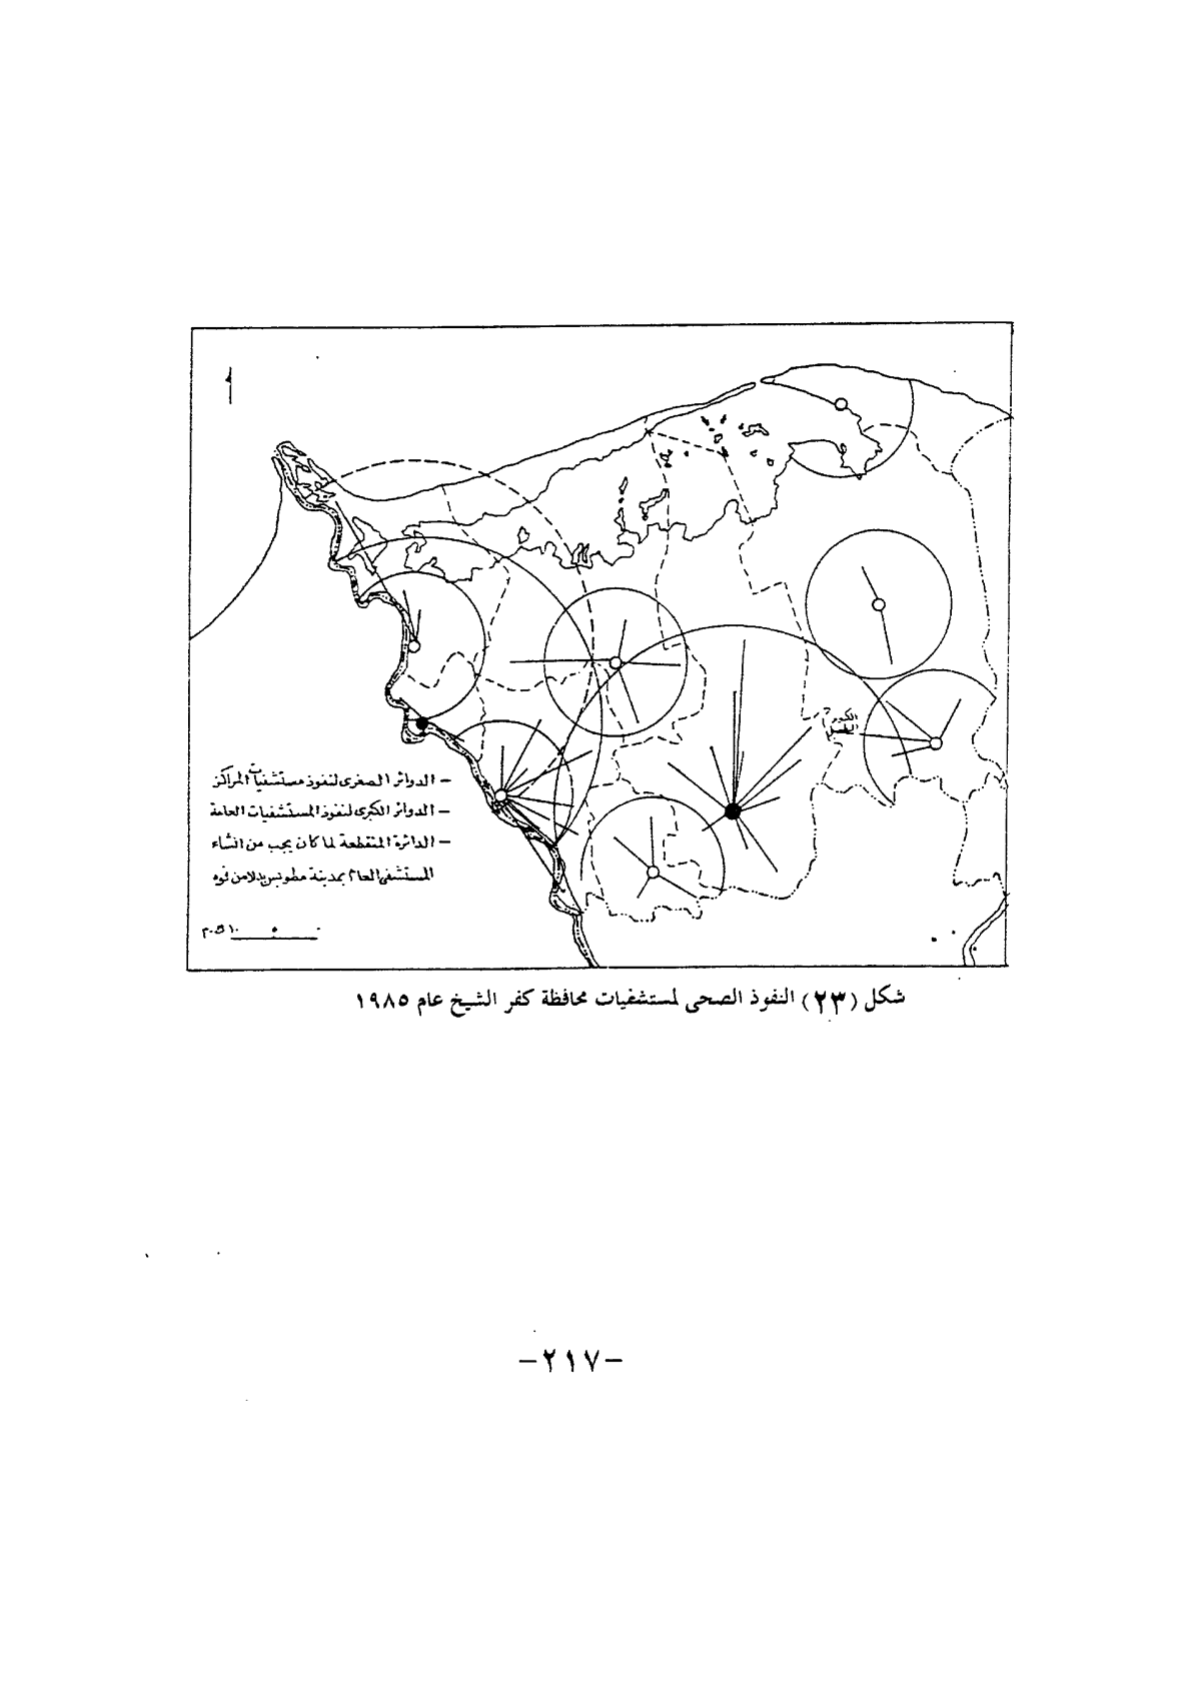 الكوم
الطويل
– الدوائر الصغرى لنفوذ مستشفيات المراكز
– الدوائر الكبرى لنفوذ المستشفيات العامة
– الدائرة المتقطعة لما كان يجب من انشاء
المستشفى العام بمدينة مطوبس بدلا من فوه
١٠ ك.م ٥ ٠
شكل (٢٣) النفوذ الصحى لمستشفيات محافظة كفر الشيخ عام ١٩٨٥
–٢١٧–